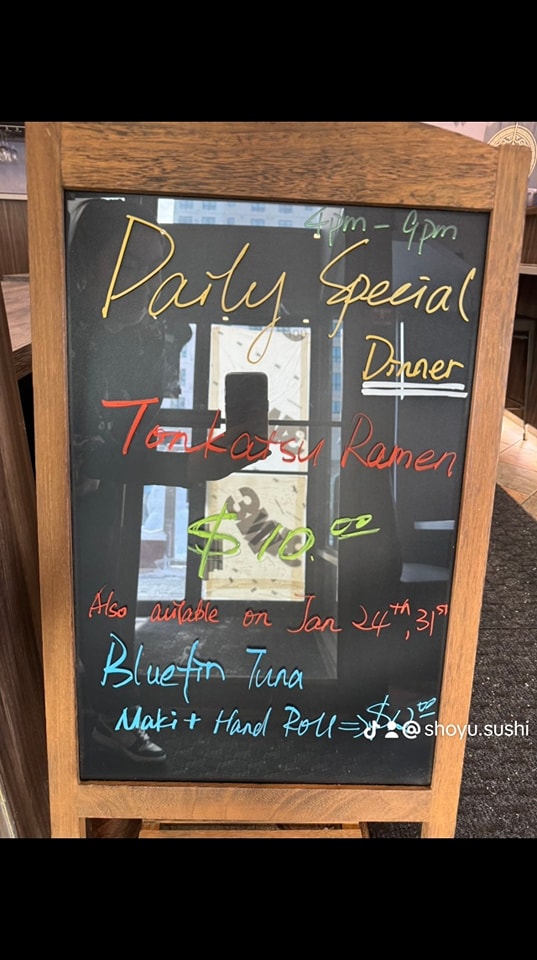 4pm - 9pm
Daily Special
Dinner
Tonkatsu Ramen
$10.00
Also avilable on Jan 24th, 31st
Bluefin Tuna
Maki + Hand Roll =>
@shoyu.sushi